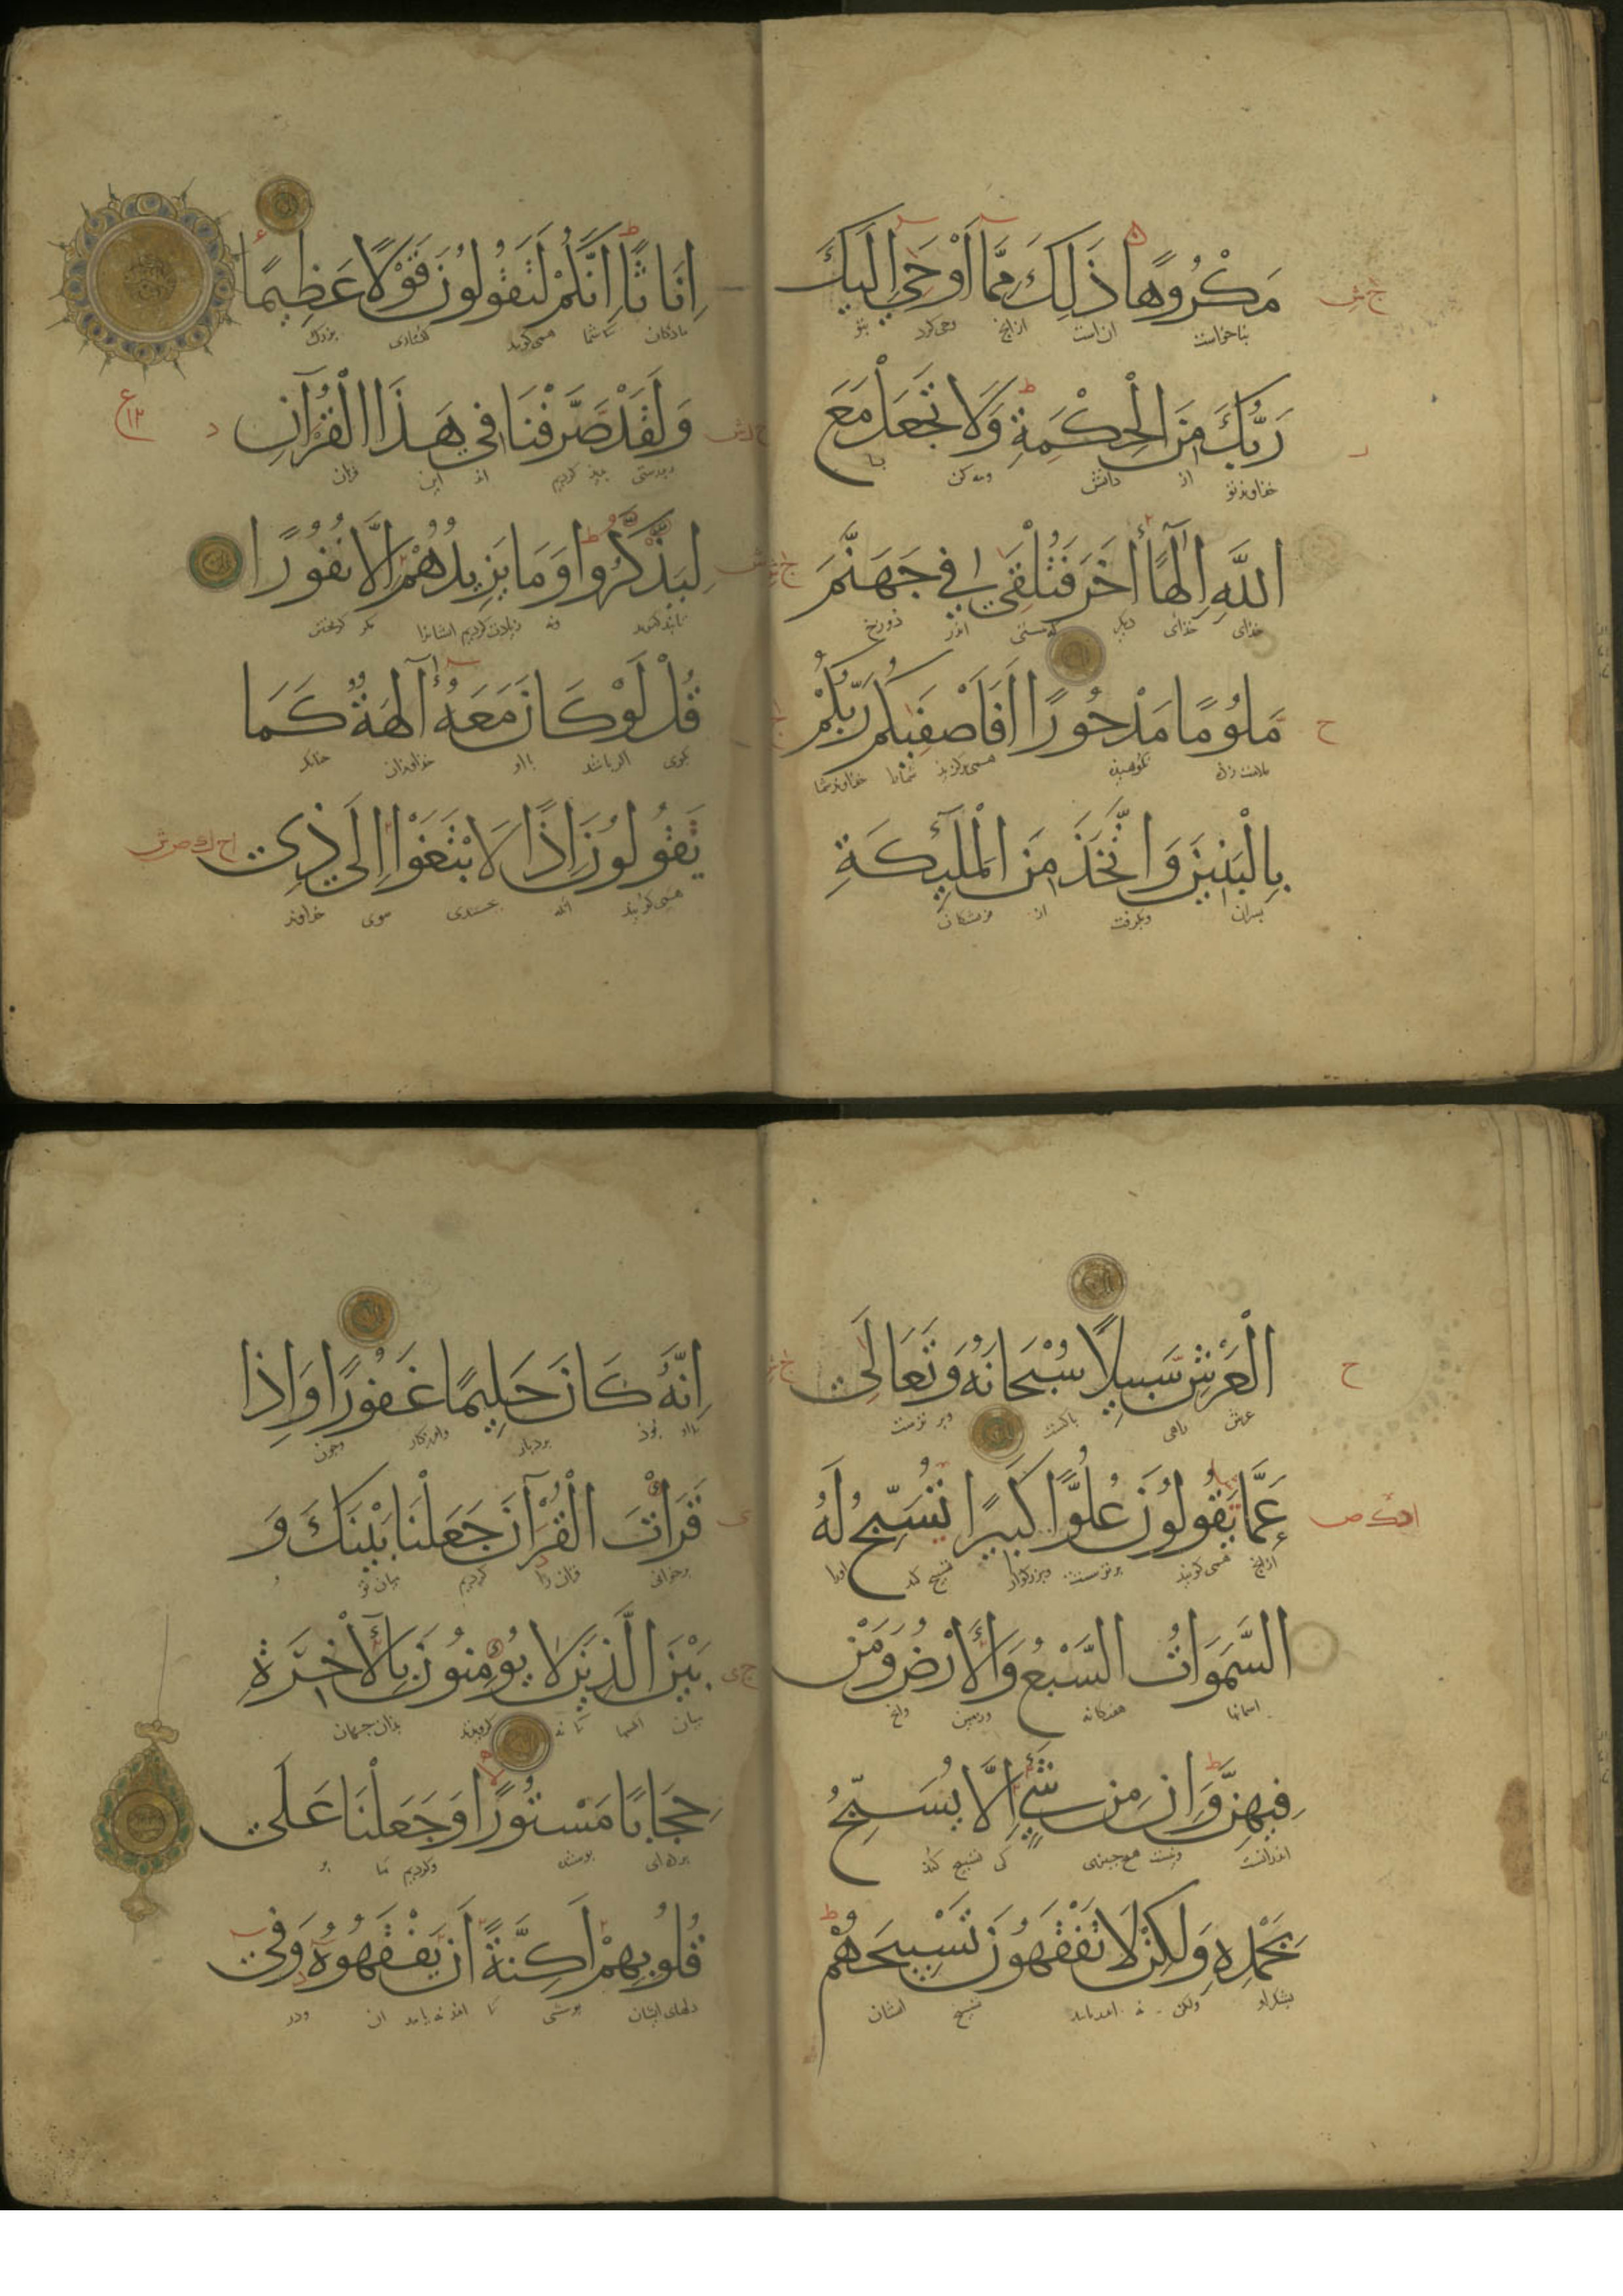 مَكْرُوهًا ذَلِكَ مِمَّا أَوْحَى إِلَيْكَ
بناخواست ان است از انچ وحی کرد بتو
رَبُّكَ مِنَ الْحِكْمَةِ وَلَا تَجْعَلْ مَعَ
خذاوند تو از دانش ومه کن با
اللَّهِ إِلَهًا آخَرَ فَتُلْقَى فِي جَهَنَّمَ
خذای خذای دیکر اندر دوزخ
مَلُومًا مَدْحُورًا أَفَأَصْفَيكُمْ رَبُّكُمْ
ملامت زده نکوهیذه شمارا خذاوند شما
بِالْبَنِينَ وَاتَّخَذَ مِنَ الْمَلَئِكَةِ
بسران وبکرفت از فرشتکان
إِنَاثًا إِنَّكُمْ لَتَقُولُونَ قَوْلًا عَظِيمًا
مادکان شما می کویید کفتاری بزرك
وَلَقَدْ صَرَّفْنَا فِي هَذَا الْقُرْآنِ
وبدرستی کردیم اندر این قران
لِيَذَّكَّرُوا وَمَا يَزِيدُهُمْ إِلَّا نُفُورًا
تا پند کیرند ونه زیادت کردیم ایشانرا مکر کریختن
قُلْ لَوْ كَانَ مَعَهُ آلِهَةٌ كَمَا
بکوی اکر باشد با او خذاوندان جنانک
تَقُولُونَ إِذًا لَابْتَغَوْا إِلَى ذِي
می کویید انکه بجستندی سوی خداوند
الْعَرْشِ سَبِيلًا سُبْحَانَهُ وَتَعَالَى
عرش راهی باکست وبرترست
عَمَّا يَقُولُونَ عُلُوًّا كَبِيرًا تُسَبِّحُ لَهُ
از انچ می کویند برترست وبزرکوار تسبیح کند اورا
السَّمَوَاتُ السَّبْعُ وَالْأَرْضُ وَمَنْ
اسمانها هفتکانه وزمین وانچ
فِيهِنَّ وَإِنْ مِنْ شَيْءٍ إِلَّا يُسَبِّحُ
اندرانست ونیست هیچ جیزی کی تسبیح کند
بِحَمْدِهِ وَلَكِنْ لَا تَفْقَهُونَ تَسْبِيحَهُمْ
بشکر او ولکن نه تسبیح ایشان
إِنَّهُ كَانَ حَلِيمًا غَفُورًا وَإِذَا
بوذ بردبار وامرزکار وجون
قَرَأْتَ الْقُرْآنَ جَعَلْنَا بَيْنَكَ وَ
برخوانی قران را کردیم میان تو و
بَيْنَ الَّذِينَ لَا يُؤْمِنُونَ بِالْآخِرَةِ
میان نه کرویدند بذان جهان
حِجَابًا مَسْتُورًا وَجَعَلْنَا عَلَى
برده ای بوشیده وکردیم ما بر
قُلُوبِهِمْ أَكِنَّةً أَنْ يَفْقَهُوهُ وَفِي
دلهای ایشان بوششی تا ان ودر